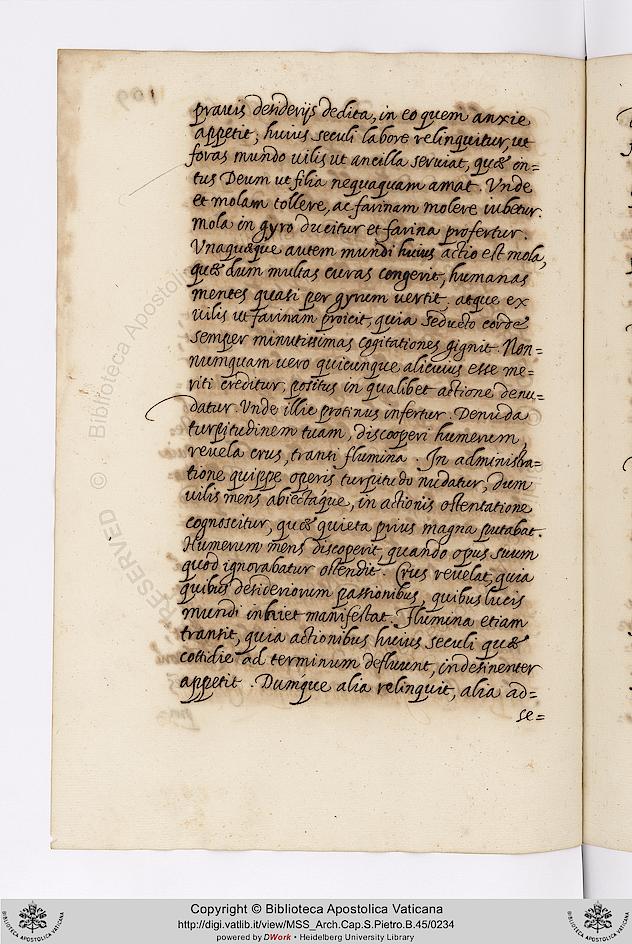 prauis desiderijs dedita, in eo quem anxie
appetit, huius seculi labore relinquitur, ut
foras mundo uilis ut ancilla seruiat, quæ in=
tus Deum ut filia nequaquam amat. Vnde
et molam tollere, ac farinam molere iubetur.
mola in gyro ducitur et farina profertur.
Vnaquæque autem mundi huius actio est mola,
quæ dum multas curas congerit, humanas
mentes quasi per gyrum uertit. atque ex
uilis ut farinam proicit, quia seducto corde
semper minutissimas cogitationes gignit. Non=
numquam uero quicunque alicuius esse me=
riti creditur, positus in qualibet actione denu=
datur. Vnde illic protinus infertur. Denuda
turpitudinem tuam, discooperi humerum,
reuela crus, transi flumina. In administra=
tione quippe operis turpitudo nudatur, dum
uilis mens abiectaque, in actionis ostentatione
cognoscitur, quæ quieta prius magna putabat.
Humerum mens discoperit, quando opus suum
quod ignorabatur ostendit. Crus reuelat, quia
quibus desideriorum passionibus, quibus lucis
mundi inhiet manifestat. Flumina etiam
transit, quia actionibus huius seculi quæ
cottidie ad terminum defluunt, indesinenter
appetit. Dumque alia relinquit, alia ad=
se=
109
© Biblioteca Apostoli
RESERVED ©
Copyright © Biblioteca Apostolica Vaticana
http://digi.vatlib.it/view/MSS_Arch.Cap.S.Pietro.B.45/0234
powered by DWork • Heidelberg University Library